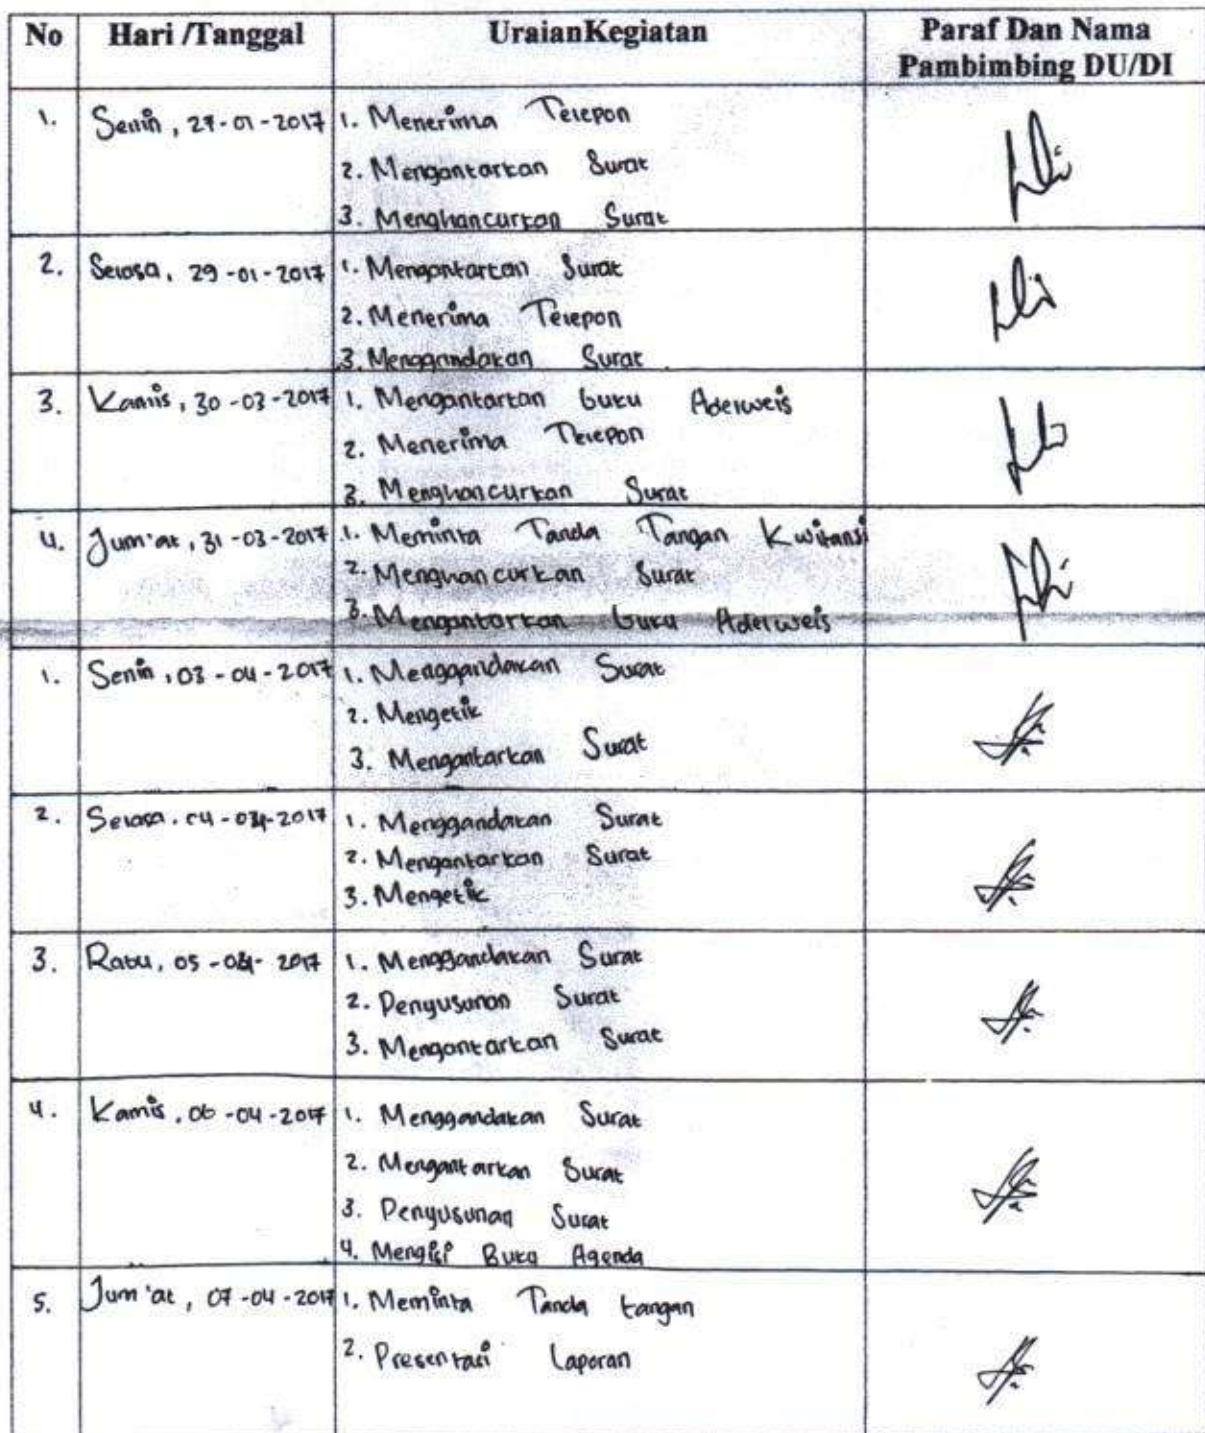 No Hari /Tanggal UraianKegiatan Paraf Dan Nama
Pambimbing DU/DI
1. Senin, 27-01-2017 1. Menerima Telepon
2. Mengantarkan Surat
3. Menghancurkan Surat
2. Selasa, 29-01-2017 1. Mengantarkan Surat
2. Menerima Telepon
3. Menggandakan Surat
3. Kamis, 30-03-2017 1. Mengantarkan buku Aderweis
2. Menerima Telepon
3. Menghancurkan Surat
4. Jum'at, 31-03-2017 1. Meminta Tanda Tangan Kwitansi
2. Menghancurkan Surat
3. Mengantarkan buku Aderweis
1. Senin, 03-04-2017 1. Menggandakan Surat
2. Mengetik
3. Mengantarkan Surat
2. Selasa, 04-04-2017 1. Menggandakan Surat
2. Mengantarkan Surat
3. Mengetik
3. Rabu, 05-04-2017 1. Menggandakan Surat
2. Penyusunan Surat
3. Mengantarkan Surat
4. Kamis, 06-04-2017 1. Menggandakan Surat
2. Mengantarkan Surat
3. Penyusunan Surat
4. Mengisi Buku Agenda
5. Jum'at, 07-04-2017 1. Meminta Tanda tangan
2. Presentasi Laporan